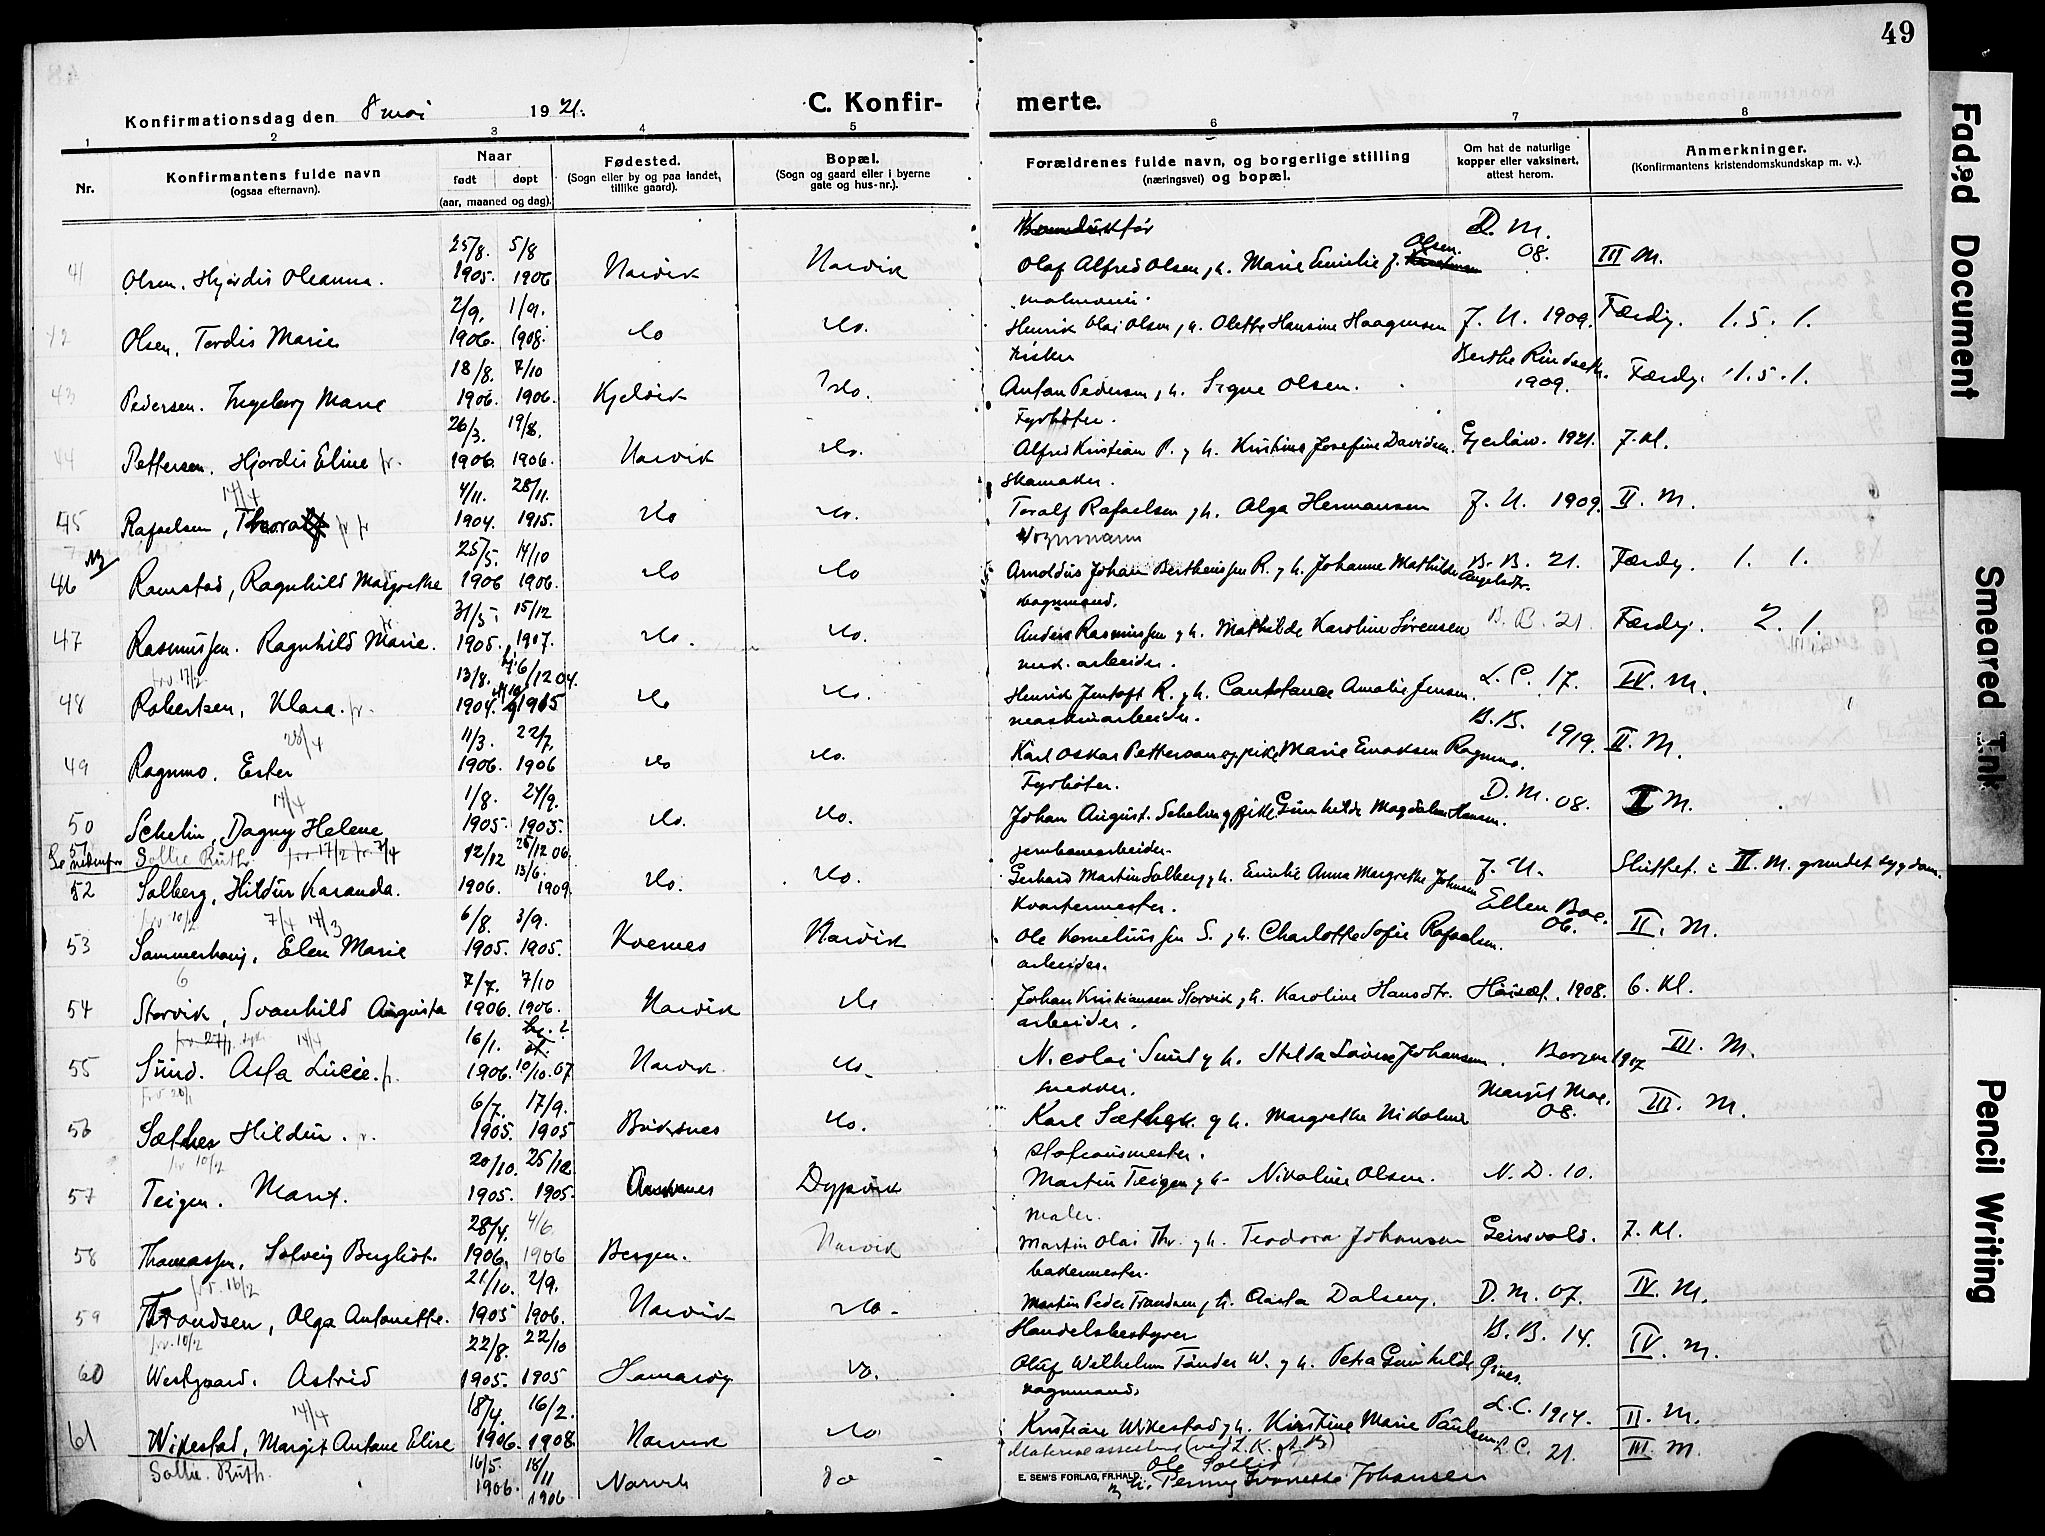 49
Konfirmationsdag den 8 mai 1921.
C. Konfir- merte.
1 2 3 4 5 6 7 8
Nr.
Konfirmantens fulde navn
(ogsaa efternavn).
Naar
født døpt
(aar, maaned og dag).
Fødested.
(Sogn eller by og paa landet,
tillike gaard).
Bopæl.
(Sogn og gaard eller i byerne
gate og hus-nr.).
Forældrenes fulde navn, og borgerlige stilling
(næringsvei) og bopæl.
Om hat de naturlige
kopper eller vaksinert,
attest herom.
Anmerkninger.
(Konfirmantens kristendomskundskap m. v.).
25/8. 5/8 D. M.
41 Olsen. Hjørdis Oleanna. 1905. 1906 Narvik Narvik Olaf Alfred Olsen, h. Marie Emilie f. Olsen 08. III M.
2/9. 1/9.
42 Olsen, Tordis Marie 1906. 1908. do do. Henrik Olai Olsen, h. Olette Hansine Haagensen J. U. 1909. Færdig. 1. 5. 1.
18/8. 7/10 fisker
43 Pedersen. Ingeborg Marie 1906. 1906. Kjelvik do. Anton Pedersen, h. Signe Olsen. 1909. Færdig. 1. 5. 1.
26/3. 19/8. Fyrbøter.
44 Pettersen. Hjørdis Eline fr. 1906. 1906. Narvik do. Alfred Kristian P. g h. Kristine Josefine Davidsen. 1921. 7. kl.
14/4 4/11. 28/11. Skomaker.
45 Rafaelsen, Thoralf fr fr 1904. 1915. do do. Toralf Rafaelsen g h. Alga Hermansen J. U. 1909. II. M.
25/5. 14/10 Vognmann
46 Ramstad, Ragnhild Margrethe 1906 1906. do do Arnoldus Johan Bertheussen R. g h. Johanne Mathilde B. B. 21. Færdig. 1. 1.
31/5. 15/12 Vognmand.
47 Rasmussen. Ragnhild Marie. 1905. 1907. do. do. Anders Rasmussen g h. Mathilde Karoline Sørensen B. B. 21. Færdig. 2. 1.
frv 17/2 13/8. 6/12 04. mek. arbeider.
48 Robertsen, Klara. fr. 1904. 1915 do do. Henrik Jentoft R. g h. Constance Amalie Jensen. L. C. 17. IV. M.
28/4 11/3. 22/7. B. B.
49 Ragnmo. Ester 1906. 1906 do do. Karl Oskar Petterson og pike Marie Enoksen Ragnmo. 1919. II. M.
14/4 1/8. 24/9. Fyrbøter.
50 Schelin, Dagny Helene 1905. 1905. do. do. Johan August Schelin g pike Gunhilde Magdalen Hansen. D. M. 08. II M.
51 Se nedenfor Sollie Ruth. frv 17/2 fr. 7/4 12/12 26/12 06. jernbanearbeider.
52 Solberg, Hildur Karanda. 1906. 13/6. 1909. do. do. Gerhard Martin Solberg g h. Emilie Anna Margrethe Johnsen J. U. Sluttet i II. M. grundet sygdom.
frv 10/2 7/4 14/3 6/8. 3/9. Kvartermester.
53 Sammerhaug, Elen Marie 1905. 1905. Kvernes Narvik Ole Korneliussen S. g h. Charlotte Sofie Rafaelsen. Ellen Boe. 06. II. M.
6 7/7. 7/10 arbeider.
54 Storvik, Svanhild Augusta 1906. 1906. Narvik do Johan Kristiansen Storvik g h. Karoline Hansdtr. 1908. 6. Kl.
frv 27/1. 14/4 16/1. arbeider.
55 Sund. Asta Lucie. fr. 1906. 10/10. 07 Narvik do. Nicolai Sund g h. Hilda Lovise Johansen. Bergen 1907 III. M.
6/7. 17/9. snedker.
56 Sæther Hildur. fr. 1905. 1905 Buksnes do. Karl Sæther g h. Margrethe Nikoline Margit Moe. 08. III. M.
frv 10/2 20/10. 25/12. Stasjonsmester.
57 Teigen. Marit. 1905. 1905. Dypvik Martin Teigen g h. Nikoline Olsen. N. D. 10.
28/4. 4/6. Maler.
58 Thomassen, Solveig Bergliot. 1906. 1906 Bergen. Narvik Martin Olai Thr. g h. Teodora Johansen Geirvold. 7. Kl.
frv. 16/2 21/10. 2/9. bademester.
59 Trondsen, Olga Antonette. 1905 1906. Narvik do. Martin Peder Trondsen g h. Aasta Dalseng. D. M. 07. IV. M.
frv. 10/2 22/8. 22/10 Handelsbestyrer
60 Westgaard. Astrid 1905. 1905 Hamarøy do. Oluf Wilhelm Tander W. g h. Petra Gunhilde Giver. B. B. 14. IV. M.
14/4 18/4. 16/2. vognmand.
61 Wikestad, Margit Antone Elise 1906. 1908. Narvik do Kristian Wikestad g h. Kirstine Marie Paulsen L. C. 1914. II. M.
Sollie. Ruth. 16/5. 1906. 18/11 1906 Narvik do Ole Sollid L. C. 21. III. M.
E. SEM'S FORLAG, FR.HALD.
g h. Penny Ivanetta Johansen
Faded Document
Smeared Ink
Pencil Writing